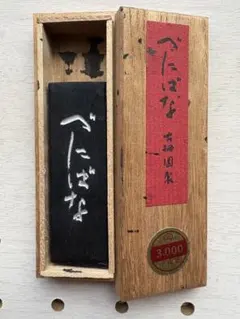 べにばな
べにばな
古梅園製
3,000